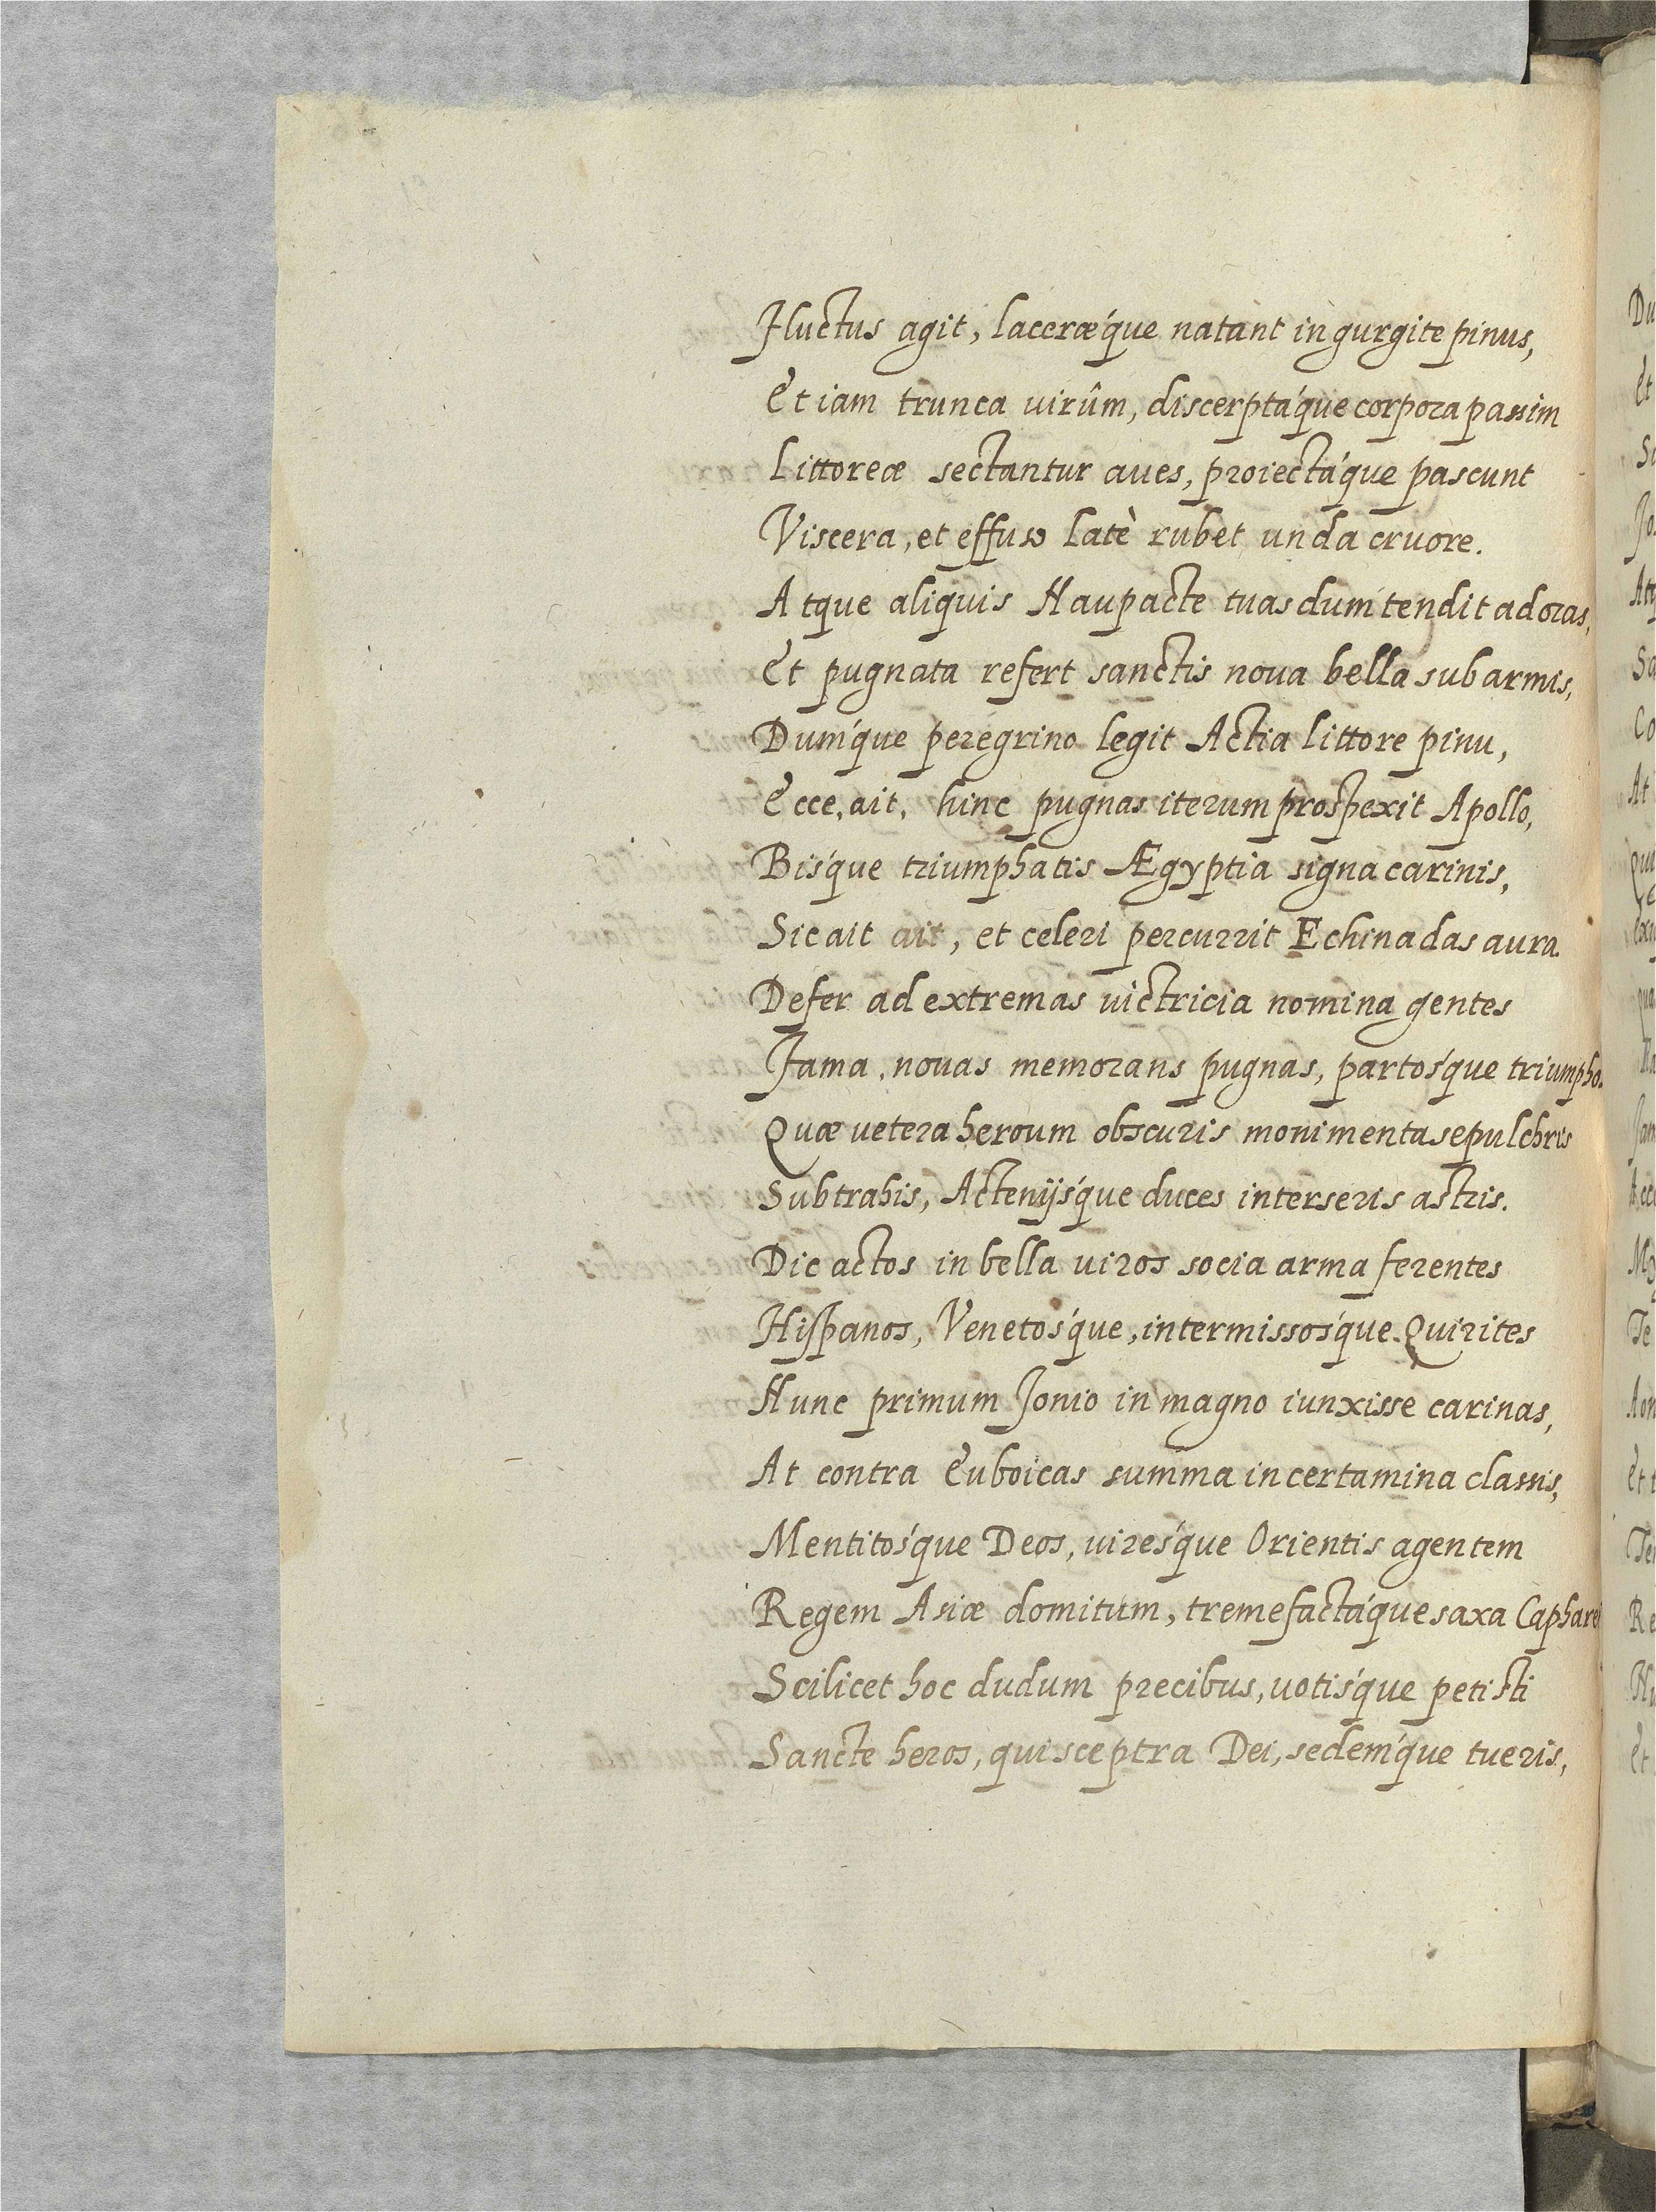 Fluctus agit, laceræq́ue natant in gurgite pinus,
Et iam trunca uirûm, discerptaq́ue corpora passim
Littoreæ sectantur aues, proiectaq́ue pascunt
Viscera, et effuso latè rubet unda cruore.
Atque aliquis Naupacte tuas dum tendit ad oras,
Et pugnata refert sanctis noua bella sub armis,
Dumq́ue peregrino legit Actia littore pinu,
Ecce, ait, hinc pugnas iterum prospexit Apollo,
Bisq́ue triumphatis Ægyptia signa carinis,
Sic ait ait, et celeri percurrit Echinadas aura.
Defer ad extremas uictricia nomina gentes
Fama, nouas memorans pugnas, partosq́ue triumpho
Quæ uetera heroum obscuris monimenta sepulchris
Subtrahis, Actenijsq́ue duces interseris astris.
Dic actos in bella uiros socia arma ferentes
Hispanos, Venetosq́ue, intermissosq́ue Quirites
Nunc primum Jonio in magno iunxisse carinas,
At contra Euboicas summa in certamina classis,
Mentitosq́ue Deos, uiresq́ue Orientis agentem
Regem Asiæ domitum, tremefactaq́ue saxa Capharei
Scilicet hoc dudum precibus, uotisq́ue petisti
Sancte heros, qui sceptra Dei, sedemq́ue tueris,